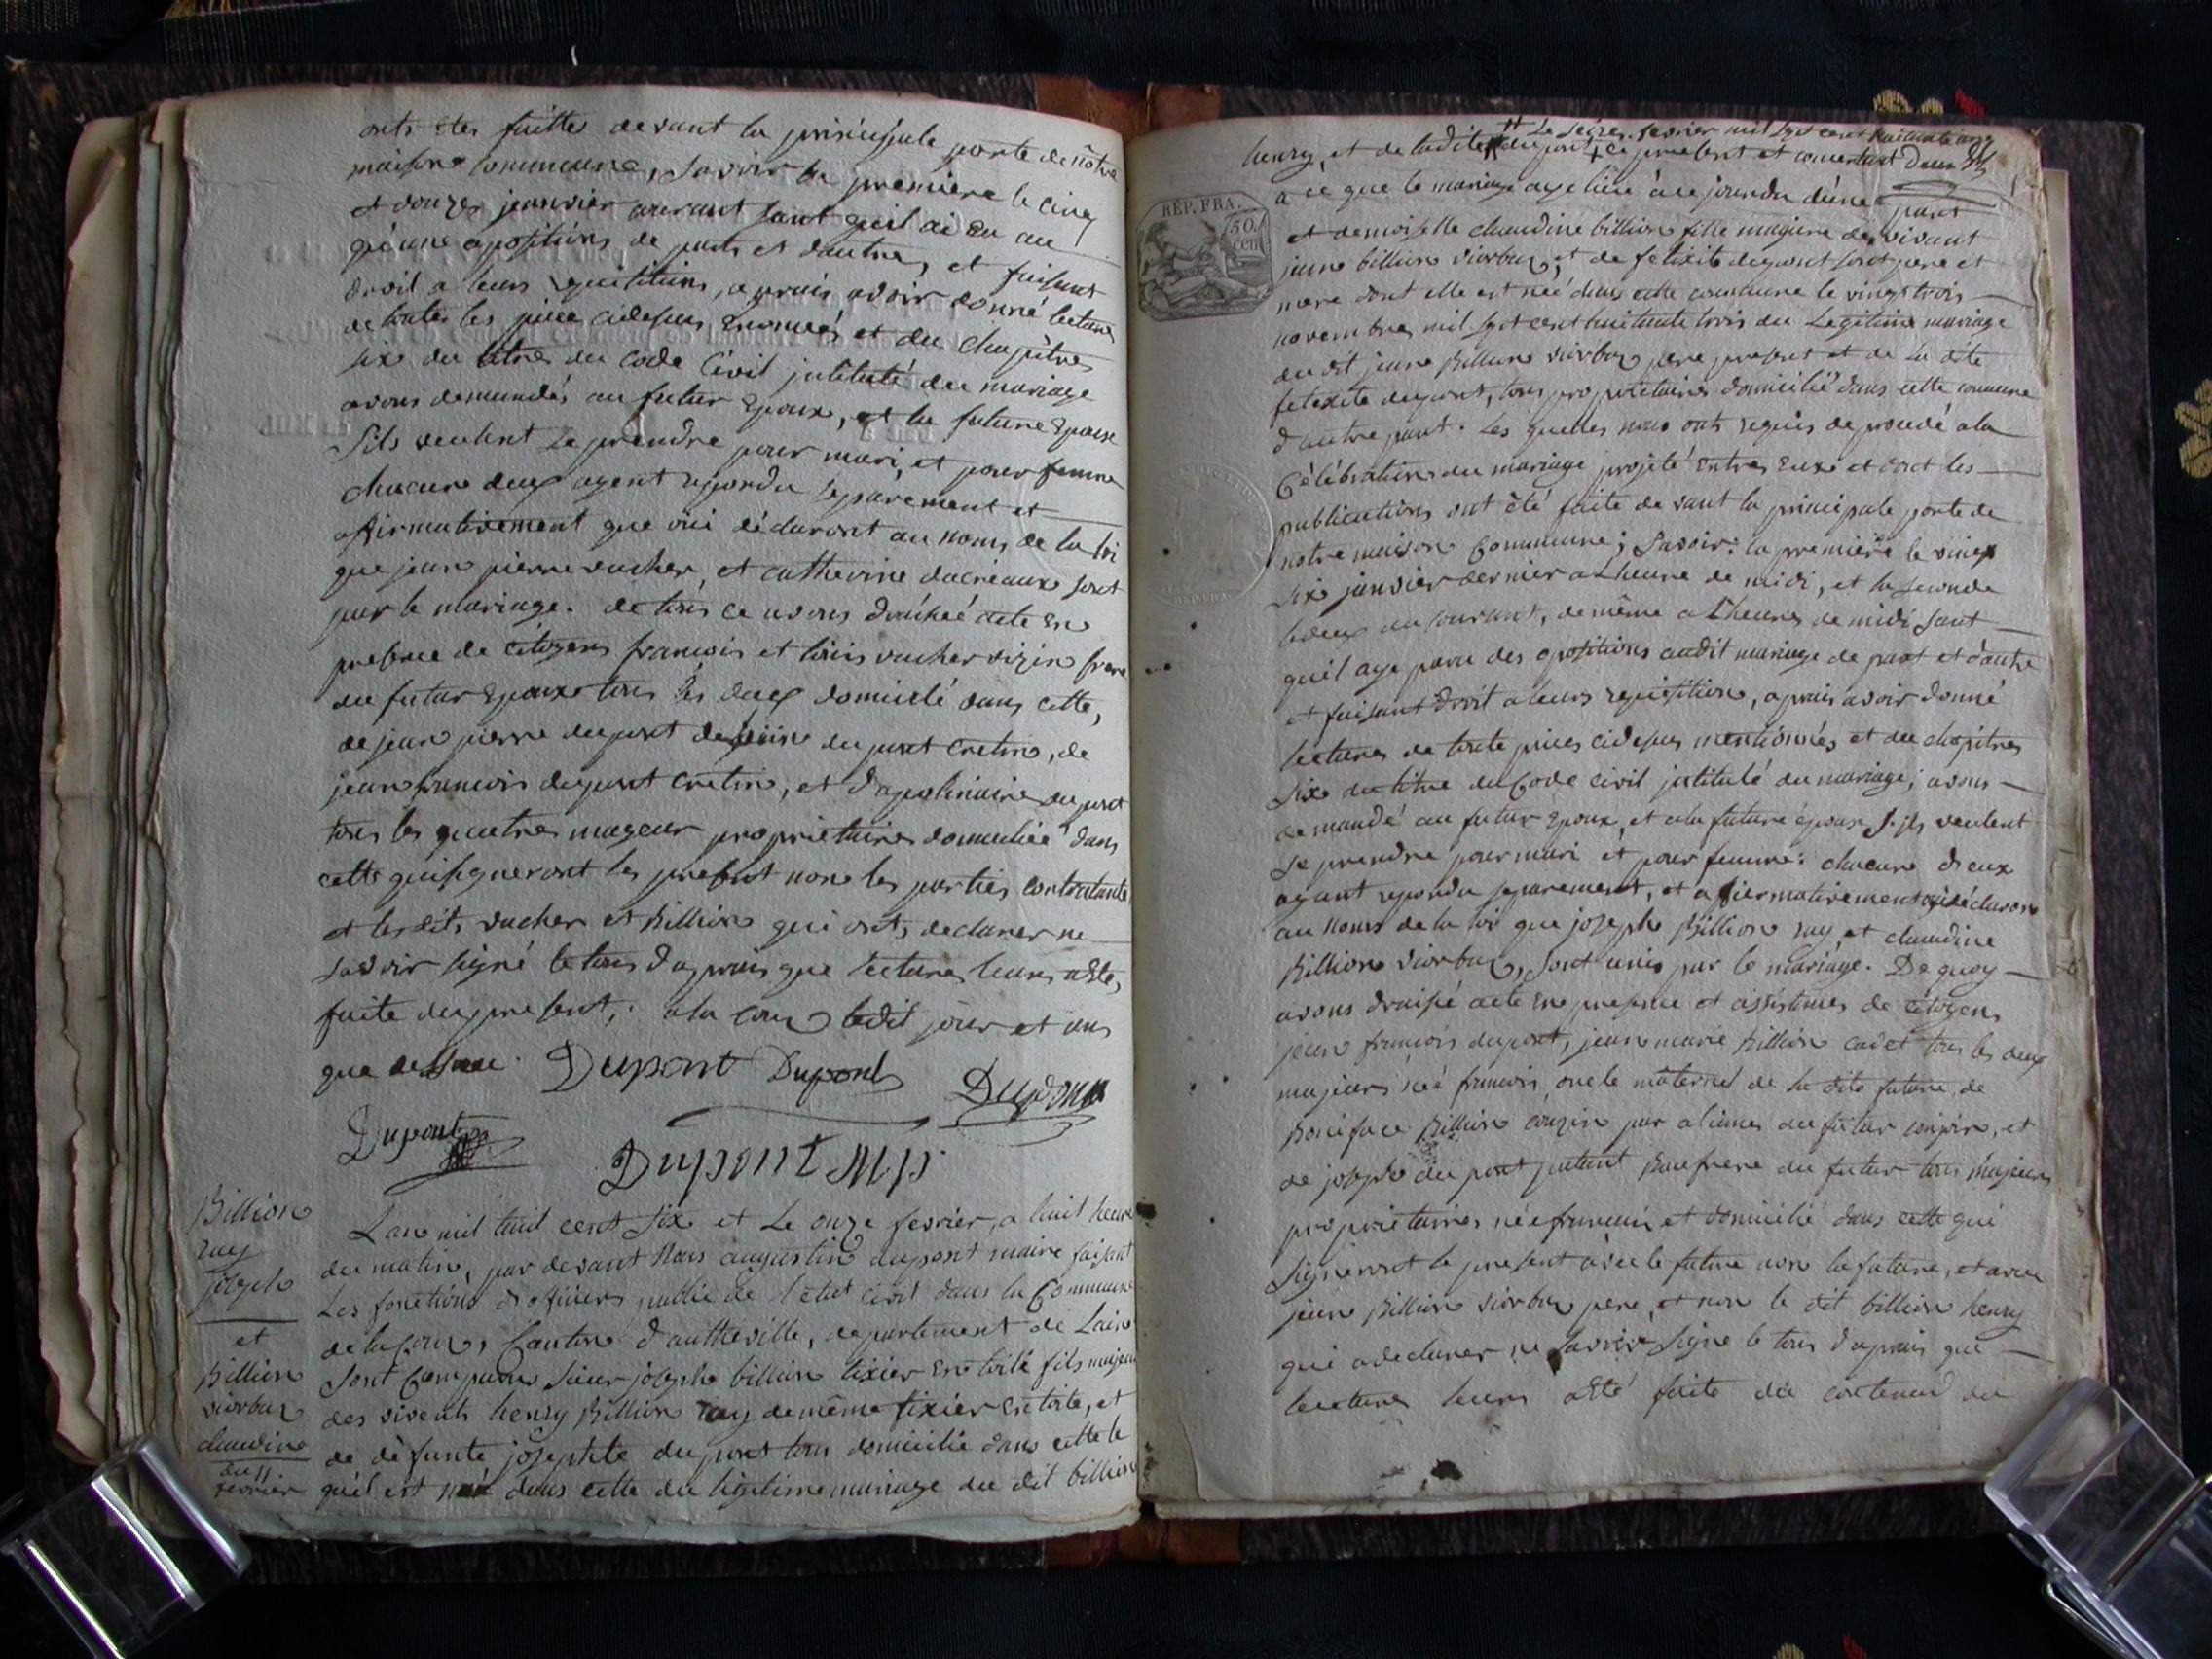 onts etes faitte devant la prinsipale porte de nôtre
maison commune, savoir la premiere le cinq
et douzes jeanvier courant sant qu'il ai eu au
qu'une opositions de parts et d'autres, et faisant
droit a leurs requititions, aprais avoir donné lecture
de toutes les piece cidesus énoncés et du chapitres
six du titres du Code Civil intitulé du mariage
avons demandés au futur Epoux, et la future Epouse
s'ils veulent se prendre pour mari, et pour femme
chacun deux ayent repondu separement et
affirmativement que oui déclaront au noms de la loi
que jean pierre vucher, et catherine ducréaux sont
par le mariage. de tous ce avons acte en
presence de citoyens francois et louis vucher frere
du futur Epoux tous les deux domicilé dans cette,
de jean pierre dupont du pont cretin, de
jean francois dupont cretin, et d'apolinaire dupont
tous les quatres mageur proprietaires domicilié dans
cette qui signeront les present non les parties contratante
et les dits vucher et Billion qui onts declarer ne
savoir signé le tous d'aprais que lectures leurs a Eté,
faite du present, a la Coux ledit jour et ans
que desus. Dupont Dupont Dupont
Dupont
Dupont M.p.
Billion
ray
joseph
et
Billion
viorbuz
claudine
du 11
fevrier
L'an mil huit cent six et Le onze fevrier, a huit heure
du matin, par devant Nous augustin dupont maire faisant
Les fonctions d'officiers public de l'etat civil dans la Commune
de la Coux, Canton d'autheville, departement de Lain
sont Comparu sieur joseph billion tixier en toile fils majeur
des vivents henry Billion ray de même tixier en toile, et
de défunte josephte dupont tous domicilié dans cette le
quel est né dans cette du légitime mariage du dit billion
henry, et de la dite dupont Le seizes fevrier mil sept cent huitante
+ ce present et consentant d'une
a ce que le mariage aye lieu a ce jourdu d'une part
et demoiselle claudine billion fille mageure de vivant
jean billion viorbuz, et de felixite dupont sont pere et
mere dont elle est neé dans cette commune le vingt trois
novembres mil sept cent huitante trois du Legitime mariage
du dit jean Billion viorbuz pere present et de la dite
felixite dupont, tous proprietaires domicilié dans cette commune
d'autre part. Les quelles nous onts requis de procedé a la
Célébration du mariage projeté entres eux et dont les
publications ont été faite devant la principale porte de
notre maison Commune; savoir: la première le vingt
six janvier dernier a L'heure de midi, et la seconde
le deux du courant, de même a L'heure de midi sant
qu'il aye paru des opositions audit mariage de part et d'autre
et faisant droit a leurs requisition, aprais avoir donné
lectures de toute pieces cidesus mentionnés et du chapitres
six du titre du Code civil intitulé du mariage; avons
demandé au futur Epoux, et a la future épouse s'ils veulent
se prendre pour mari et pour femme: chacun d'eux
ayant repondu separement, et affirmativement déclarons
au noms de la loi que joseph Billion ray et claudine
Billion viorbuz, sont unis par le mariage. De quoy
avons draissé acte en presence et assistances de citoyens
jean françois dupont, jean marie Billion cadet tous les deux
majeurs né francois, oncle maternel de la dite future, de
Boniface Billion couzin par aliances du futur conjoin, et
de joseph du pont Baufrere du futur tous majeurs
proprietaires né francois et domicilié dans cette qui
signeront le present avec le future non la future, et avec
jean Billion viorbuz pere, et non le dit billion henry
qui a declarer ne savoir signé le tous d'aprais que
lectures leurs a Eté faite du contenu du
REP. FRA.
50
cen